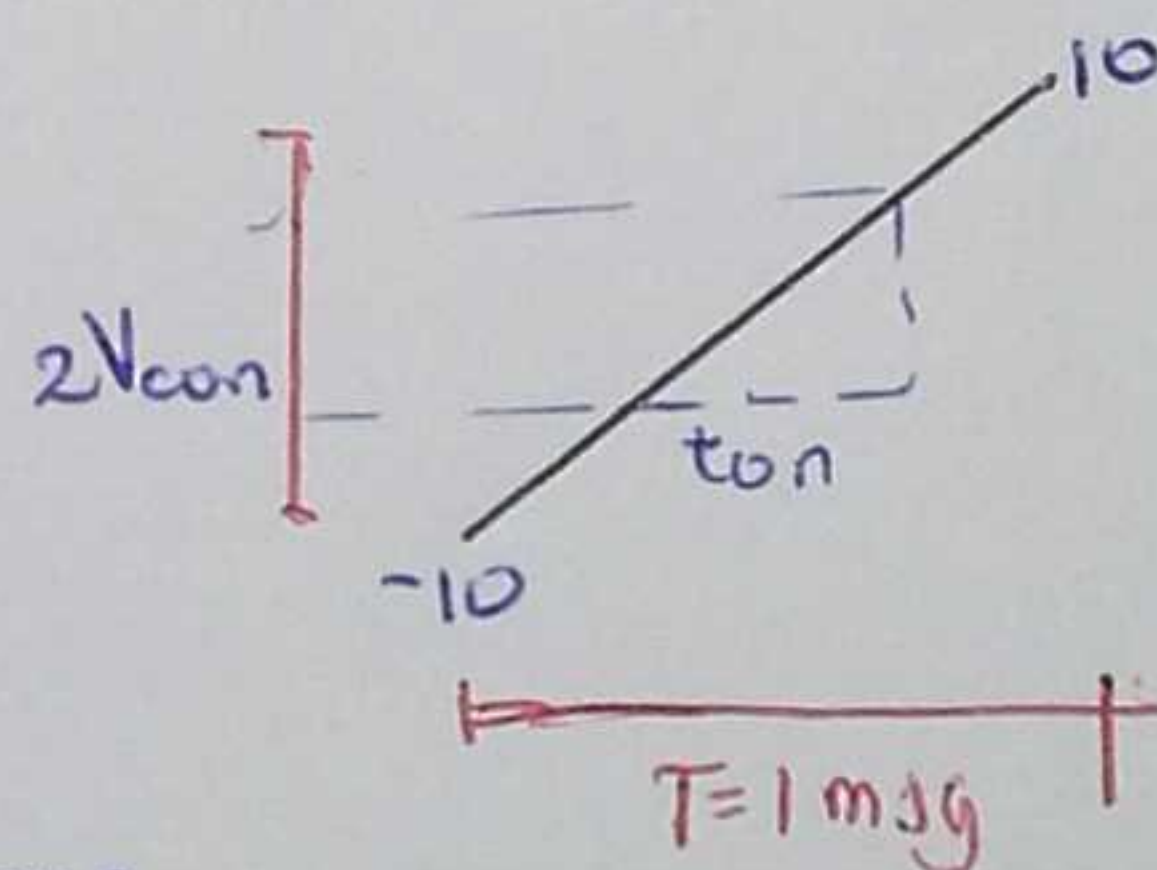 10
2Vcon
ton
-10
T=1 msg